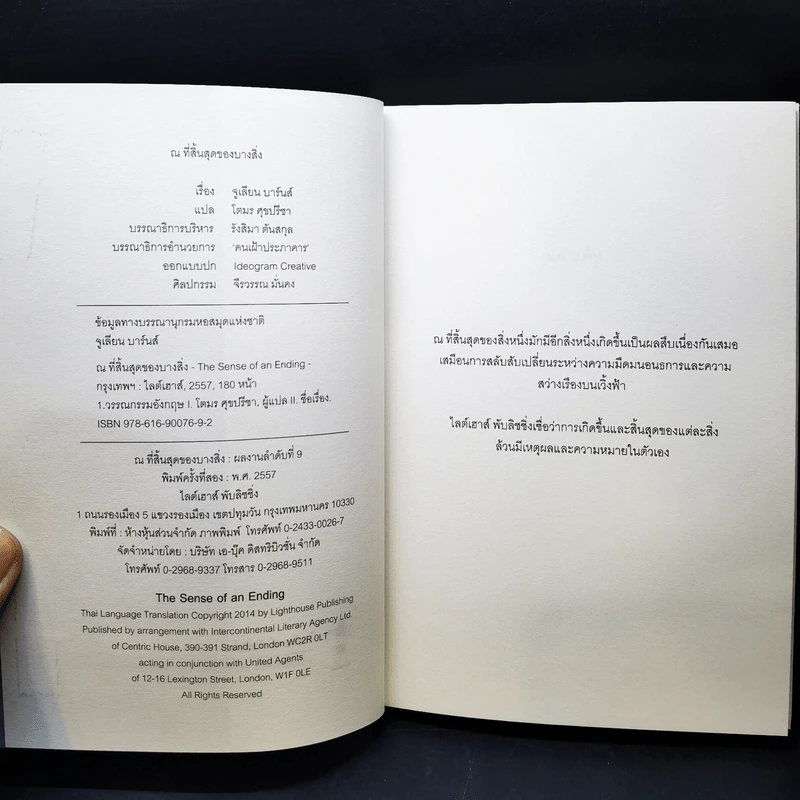 ณ ที่สิ้นสุดของบางสิ่ง
เรื่อง จูเลียน บาร์นส์
แปล โตมร ศุขปรีชา
บรรณาธิการบริหาร รังสิมา ตันสกุล
บรรณาธิการอำนวยการ 'คนเฝ้าประภาคาร'
ออกแบบปก Ideogram Creative
ศิลปกรรม จีรวรรณ มั่นคง
ข้อมูลทางบรรณานุกรมหอสมุดแห่งชาติ
จูเลียน บาร์นส์
ณ ที่สิ้นสุดของบางสิ่ง - The Sense of an Ending -
กรุงเทพฯ : ไลต์เฮาส์, 2557, 180 หน้า
1.วรรณกรรมอังกฤษ I. โตมร ศุขปรีชา, ผู้แปล II. ชื่อเรื่อง.
ISBN 978-616-90076-9-2
ณ ที่สิ้นสุดของบางสิ่ง : ผลงานลำดับที่ 9
พิมพ์ครั้งที่สอง : พ.ศ. 2557
ไลต์เฮาส์ พับลิชชิ่ง
1 ถนนรองเมือง 5 แขวงรองเมือง เขตปทุมวัน กรุงเทพมหานคร 10330
พิมพ์ที่ : ห้างหุ้นส่วนจำกัด ภาพพิมพ์ โทรศัพท์ 0-2433-0026-7
จัดจำหน่ายโดย : บริษัท เอ-บุ๊ค ดิสทริบิวชั่น จำกัด
โทรศัพท์ 0-2968-9337 โทรสาร 0-2968-9511
The Sense of an Ending
Thai Language Translation Copyright 2014 by Lighthouse Publishing
Published by arrangement with Intercontinental Literary Agency Ltd.
of Centric House, 390-391 Strand, London WC2R 0LT
acting in conjunction with United Agents
of 12-16 Lexington Street, London, W1F 0LE
All Rights Reserved
ณ ที่สิ้นสุดของสิ่งหนึ่งมักมีอีกสิ่งหนึ่งเกิดขึ้นเป็นผลสืบเนื่องกันเสมอ
เสมือนการสลับสับเปลี่ยนระหว่างความมืดมนอนธการและความ
สว่างเรืองบนเวิ้งฟ้า
ไลต์เฮาส์ พับลิชชิ่งเชื่อว่าการเกิดขึ้นและสิ้นสุดของแต่ละสิ่ง
ล้วนมีเหตุผลและความหมายในตัวเอง